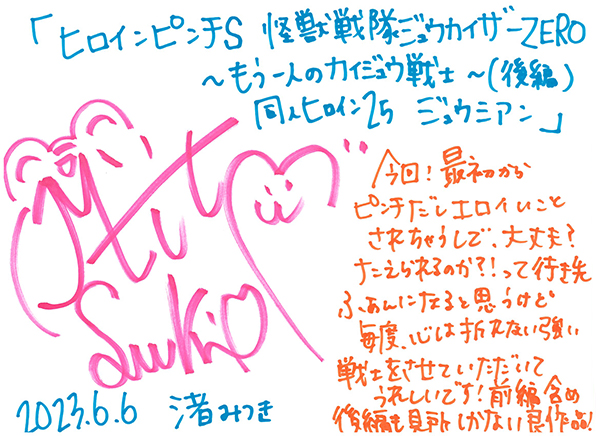 「ヒロインピンチS 怪獣戦隊ジュウカイザーZERO
～もう一人のカイジュウ戦士～(後編)
同人ヒロイン25 ジュウシアン」
Mitsu
Suki
今回！最初から
ピンチだしエロイいこと
されちゃうしで、大丈夫？
たえられるのか？！って行き先
ふあんになると思うけど
毎度、心は折れない強い
戦士をさせていただいて
うれしいです！前編含め
後編も見所しかない良作品！
2023.6.6 渚みつき